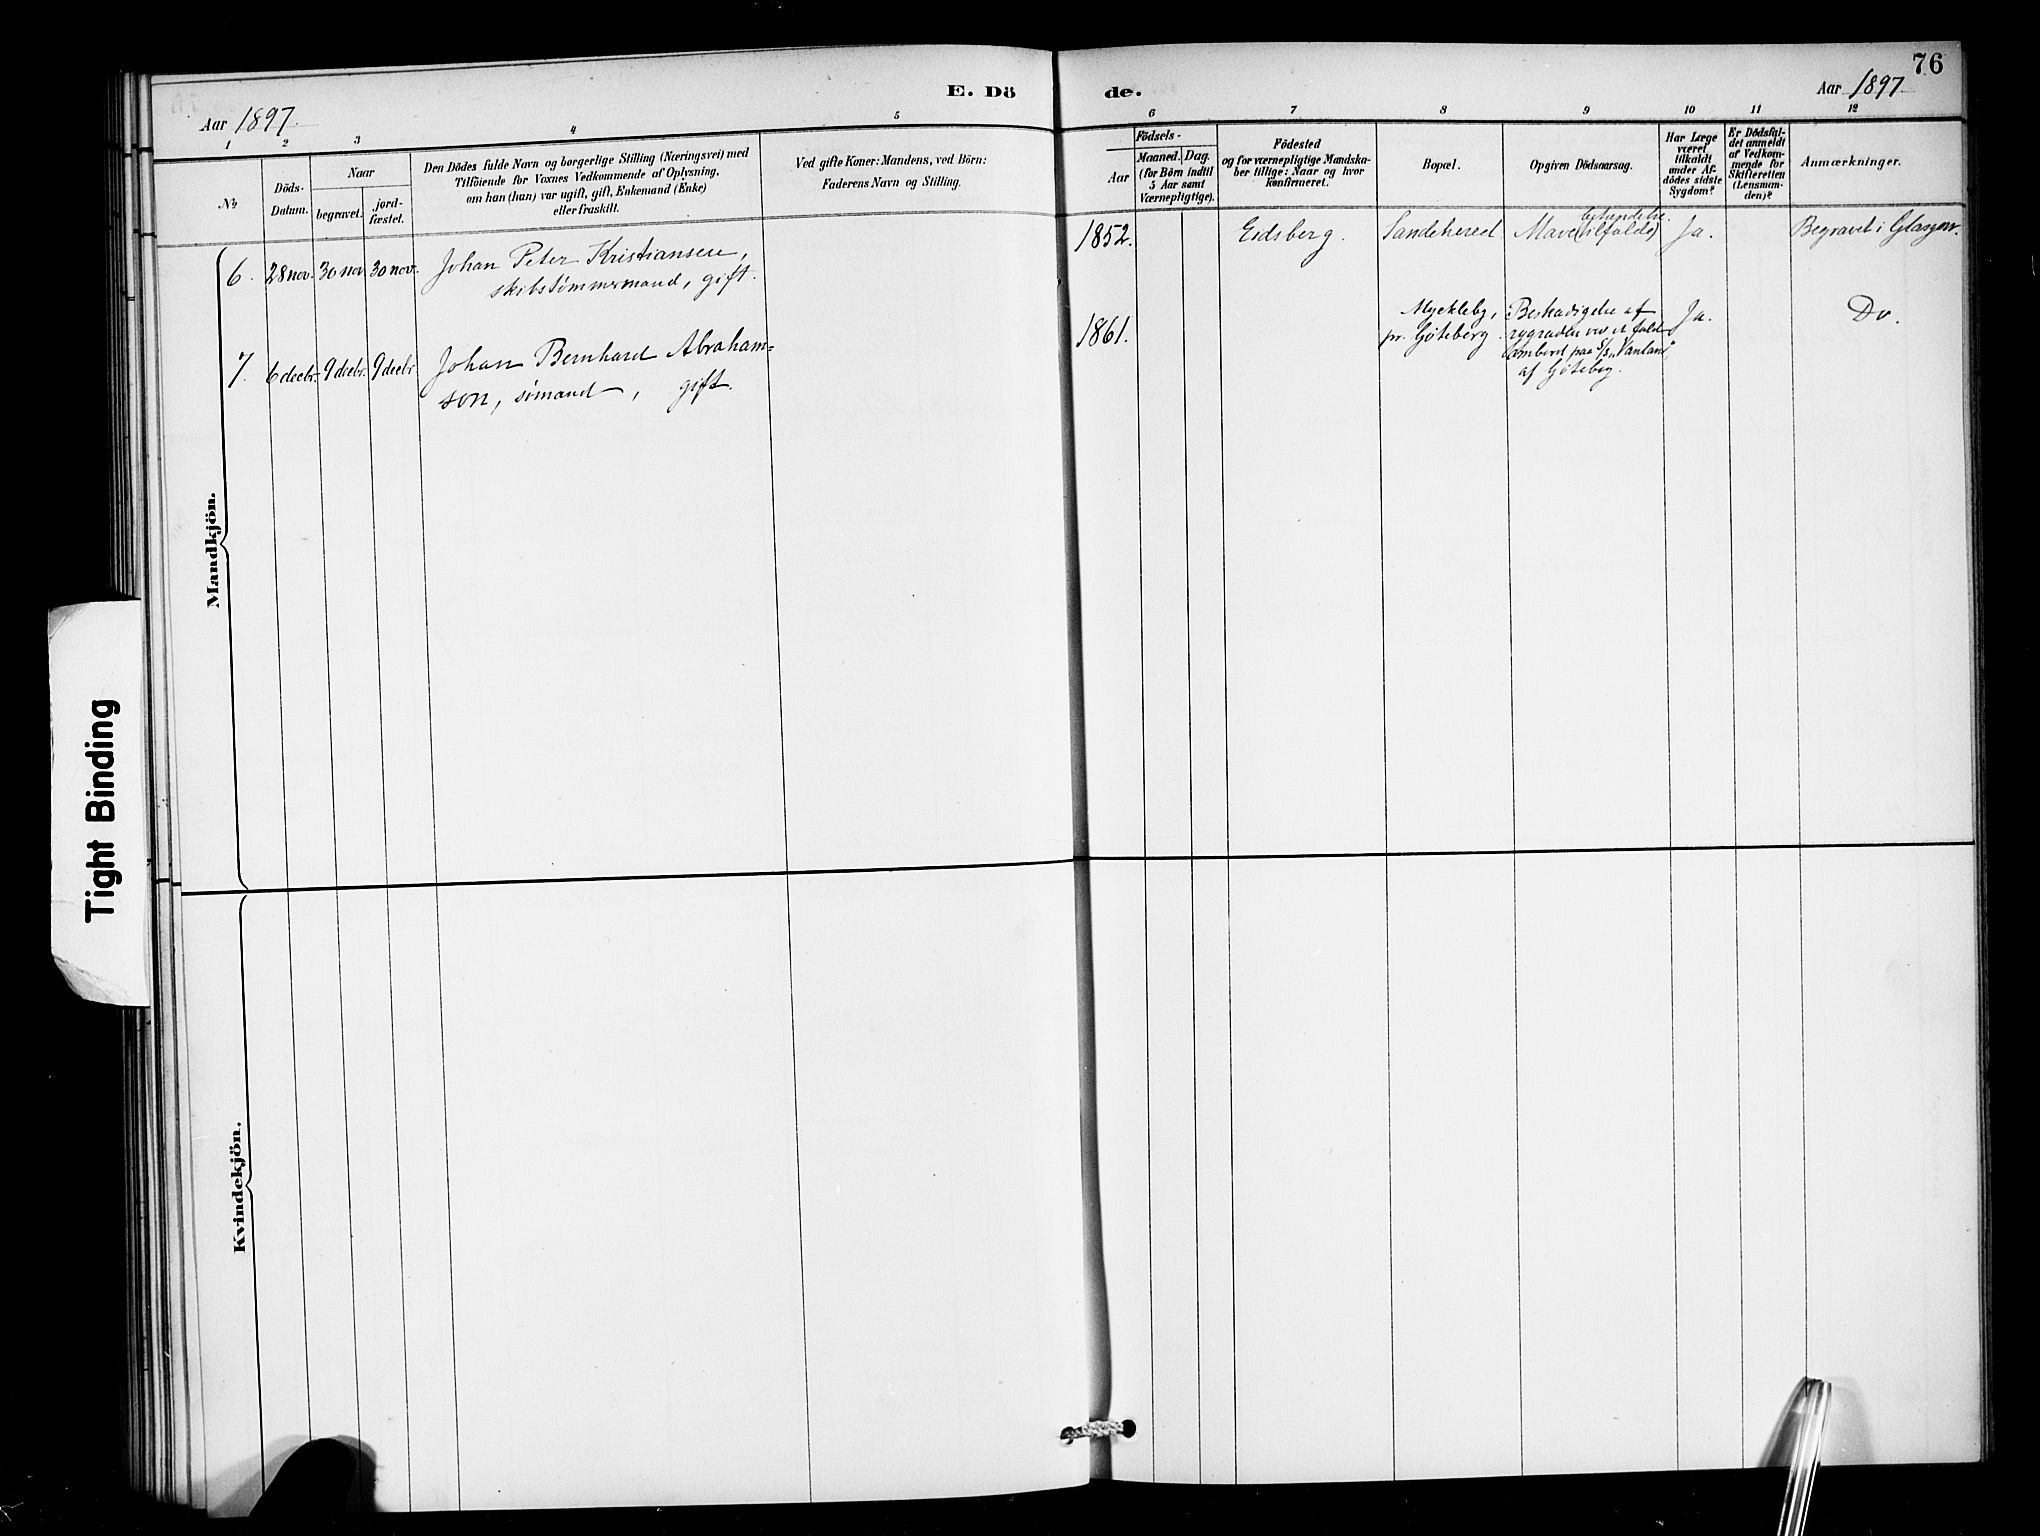 76
E. Dö de.
Aar 1897.
Aar 1897
1 2 3 4 5 6 7 8 9 10 11 12
№
Döds-
Datum.
Naar
begravet.
jord-
fæstet.
Den Dödes fulde Navn og borgerlige Stilling (Næringsvei) med
Tilföiende for Voxnes Vedkommende af Oplysning,
om han (hun) var ugift, gift, Enkemand (Enke)
eller fraskilt.
Ved gifte Koner: Mandens, ved Börn:
Faderens Navn og Stilling.
Födsels-
Aar
Maaned. Dag.
(for Börn indtil
5 Aar samt
Værnepligtige).
Födested
og for værnepligtige Mandska-
ber tillige: Naar og hvor
konfirmeret.
Bopæl.
Opgiven Dödsaarsag.
Har Læge
været
tilkaldt
under Af-
dödes sidste
Sygdom?
Er Dödsfal-
det anmeldt
af Vedkom-
mende for
Skifteretten
(Lensman-
den)?
Anmærkninger.
Mandkjön.
6. 28 nov. 30 nov. 30 novr. Johan Peter Kristiansen,
skibstømmermand, gift.
1852. Eidsberg. Sandehered Mave (tilfælde) Ja. Begravet i Glasgow.
7. 6 decbr. 9 decbr. 9 decbr. Johan Bernhard Abraham-
son, sømand, gift.
1861. Myckleby,
pr. Göteberg.
Beskadigelse af
rygraden ved et fald
ombord paa S/s
af Göteborg.
Ja. Do.
Kvindekjön.
Tight Binding